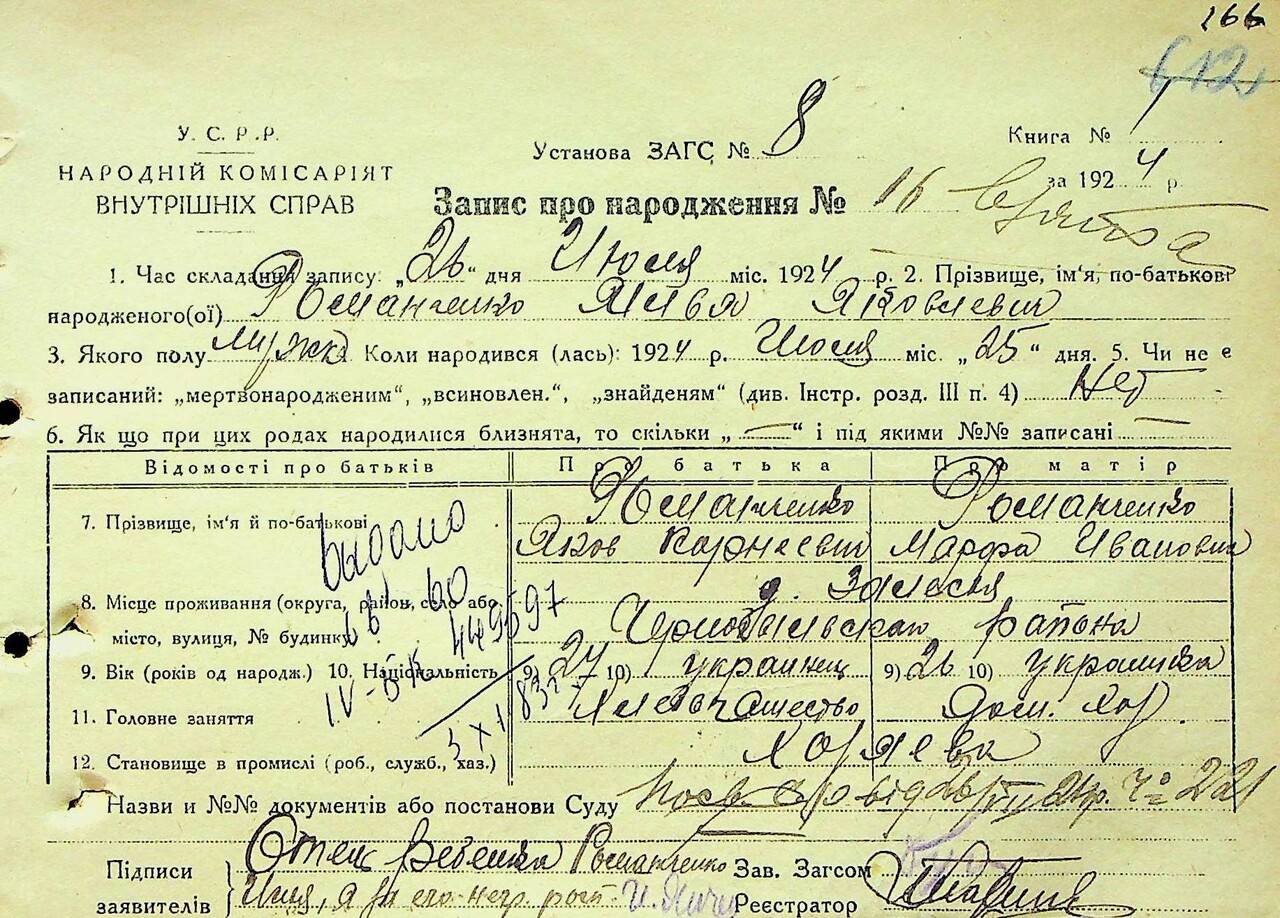 166
612
У. С. Р. Р.
НАРОДНІЙ КОМІСАРІЯТ
ВНУТРІШНІХ СПРАВ
Установа ЗАГС № 8
Книга №
за 1924 р.
Запис про народження № 16
1. Час складання запису: „26“ дня Июля міс. 1924 р. 2. Прізвище, ім'я, по-батькові
народженого(ої) Романченко Илья Яковлевич
3. Якого полу мужск Коли народився (лась): 1924 р. Июля міс. „25“ дня. 5. Чи не є
записаний: „мертвонародженим“, „всиновлен.“, „знайденям“ (див. Інстр. розд. III п. 4) Нет
6. Як що при цих родах народилися близнята, то скільки „—“ і під якими №№ записані —
Відомості про батьків Про батька Про матір
7. Прізвище, ім'я й по-батькові Романченко Романченко
Яков Корнеевич Марфа Ивановна
8. Місце проживання (округа, район, село або д. Залесья
місто, вулиця, № будинку) Чернобыльскаго района
9. Вік (років од народж.) 10. Національність 9) 27 10) украинец 9) 26 10) украинка
11. Головне заняття Хлебопашество Дом. хоз.
12. Становище в промислі (роб., служб., хаз.) Хозяева
видано
449597
Назви и №№ документів або постанови Суду
Підписи
заявителів
Отец ребенка Романченко
Зав. Загсом
Реєстратор